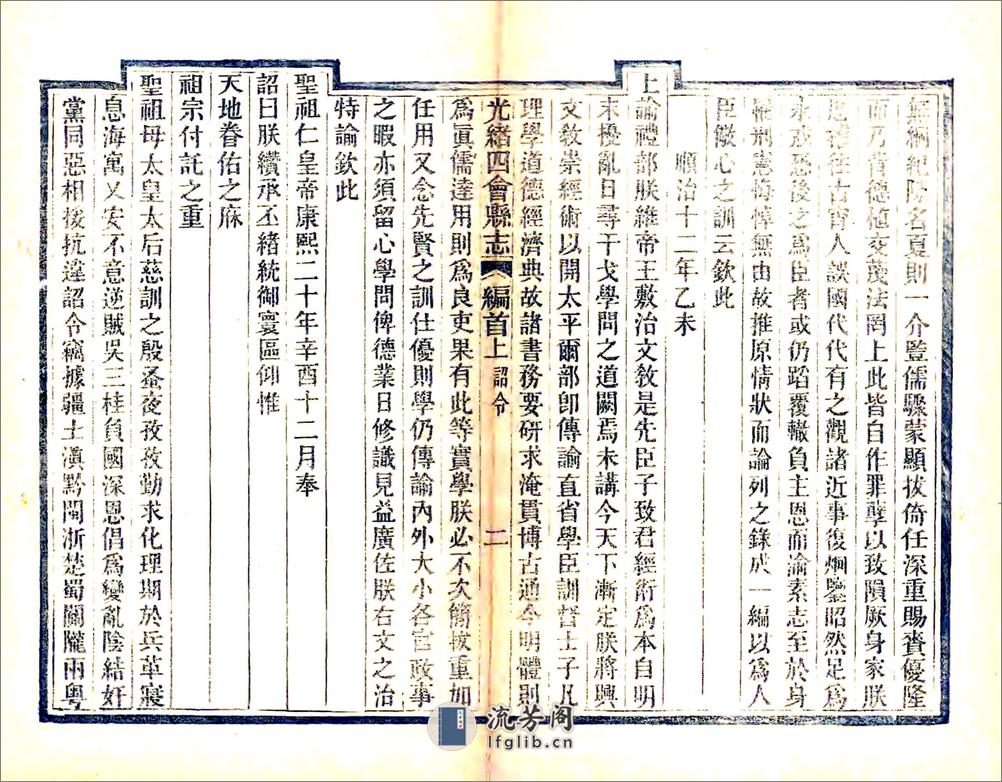 無綱紀陳名夏則一介豎儒驟蒙顯拔倚任深重賜賚優隆
而乃背德植交蔑法罔上此皆自作罪孽以致隕厥身家朕
往古宵人誤國代代有之觀諸近事復炯鑒昭然足爲
永戒恐後之爲臣者或仍蹈覆轍負主恩而論素志至於身
罹刑憲悔悼無由故推原情狀而論列之錄成一編以爲人
臣儆心之訓云欽此
順治十二年乙未
上諭禮部朕維帝王敷治文敎是先臣子致君經術爲本自明
末擾亂日尋干戈學問之道闕焉未講今天下漸定朕將興
文敎崇經術以開太平爾部卽傳諭直省學臣訓督士子凡
理學道德經濟典故諸書務要研求淹貫博古通今明體則
光緒四會縣志 編首上 詔令 二
爲眞儒達用則爲良吏果有此等實學朕必不次簡拔重加
任用又念先賢之訓仕優則學仍傳諭內外大小各官政事
之暇亦須留心學問俾德業日修識見益廣佐朕右文之治
特諭欽此
聖祖仁皇帝康熙二十年辛酉十二月奉
詔曰朕纘承丕緒統御寰區仰惟
天地眷佑之庥
祖宗付託之重
聖祖母太皇太后慈訓之殷蚤夜孜孜勤求化理期於兵革寢
息海寓乂安不意逆賊吳三桂負國深恩倡爲變亂陰結奸
黨同惡相援抗違詔令竊據疆土滇黔閩浙楚蜀關隴兩粵
流芳阁
lfglib.cn